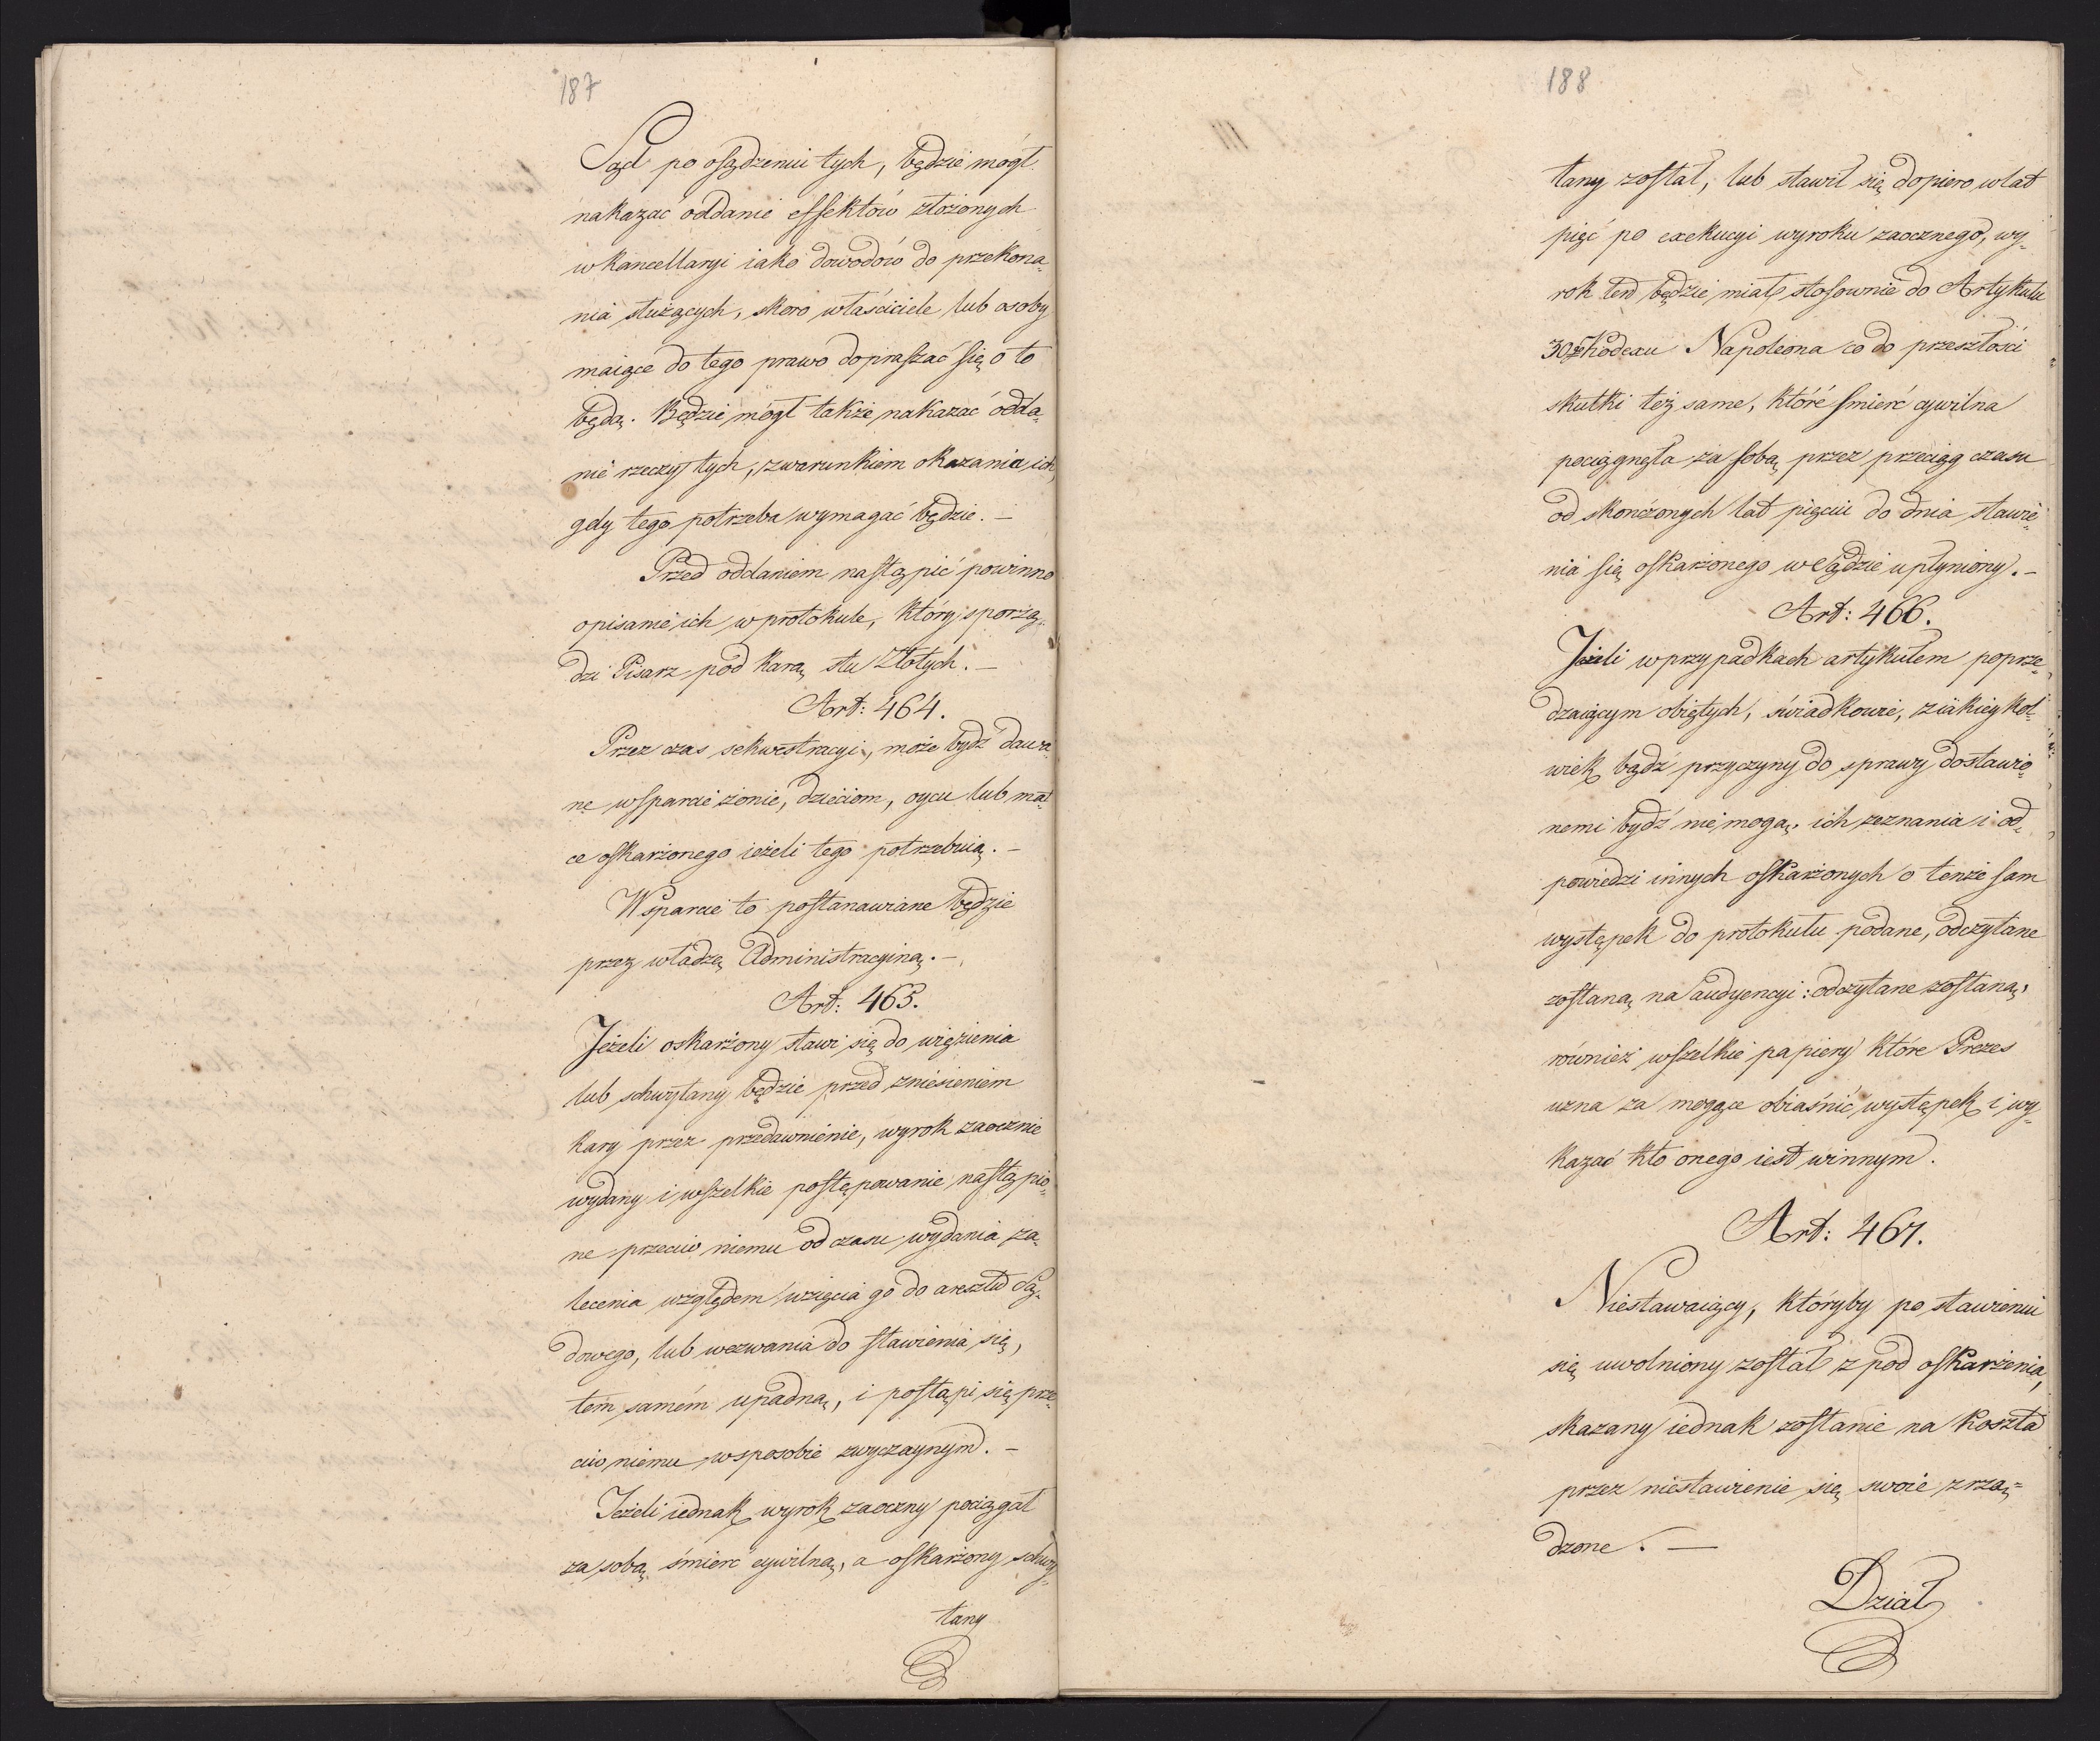 187
Sąd po osądzeniu tych, będzie mógł
nakazać oddanie effektów złożonych
w kancellaryi iako dowodów do przekona„
nia służących, skoro właściciele lub osoby
maiące do tego prawo dopraszać się o to
będą. Będzie mógł także nakazać odda„
nie rzeczy tych, z warunkiem okazania ich,
gdy tego potrzeba wymagać będzie. –
Przed oddaniem nastąpić powinno
opisanie ich w protokule, który sporzą„
dzi Pisarz pod karą stu Złotych. –
Art: 464.
Przez czas sekwestracyi, może bydź dawa„
ne wsparcie żonie, dzieciom, oycu lub mat„
ce oskarżonego ieżeli tego potrzebuią. –
Wsparcie to postanawiane będzie
przez władzę Administracyiną. –
Art: 465.
Jeżeli oskarżony stawi się do więzienia
lub schwytany będzie przed zniesieniem
kary przez przedawnienie, wyrok zaocznie
wydany i wszelkie postępowanie nastąpio„
ne przeciw niemu od czasu wydania za„
lecenia względem wzięcia go do aresztu Są„
dowego, lub wezwania do stawienia się,
tém samém upadną, i postąpi się prze„
ciw niemu w sposobie zwyczaynym. –
Jeżeli iednak wyrok zaoczny pociągał
za sobą śmierć cywilną, a oskarżony schwy„
tany
188
tany został, lub stawił się dopiero w lat
pięć po exekucyi wyroku zaocznego, wy„
rok ten będzie miał stosownie do Artykułu
30 Kodexu Napoleona co do przeszłości
skutki też same, któré śmierć cywilna
pociągnęła za sobą przez przeciąg czasu
od skończonych lat pięciu do dnia stawie„
nia się oskarżonego w Sądzie upłyniony. –
Art: 466.
Jeżeli w przypadkach artykułem poprze„
dzaiącym obiętych, świadkowie, z iakiey kol„
wiek bądź przyczyny do sprawy dostawio„
nemi bydź nie mogą, ich zeznania i od„
powiedzi innych oskarżonych o tenże sam
występek do protokułu podane, odczytane
zostaną na audyencyi: odczytane zostaną,
również wszelkie papiery które Prezes
uzna za mogące obiaśnić występek i wy„
kazać kto onego iest winnym.
Art: 467.
Niestawaiący, któryby po stawieniu
się uwolniony został z pod oskarżenia,
skazany iednak zostanie na koszta
przez niestawienie się swoie zrzą„
dzone. —
Dział